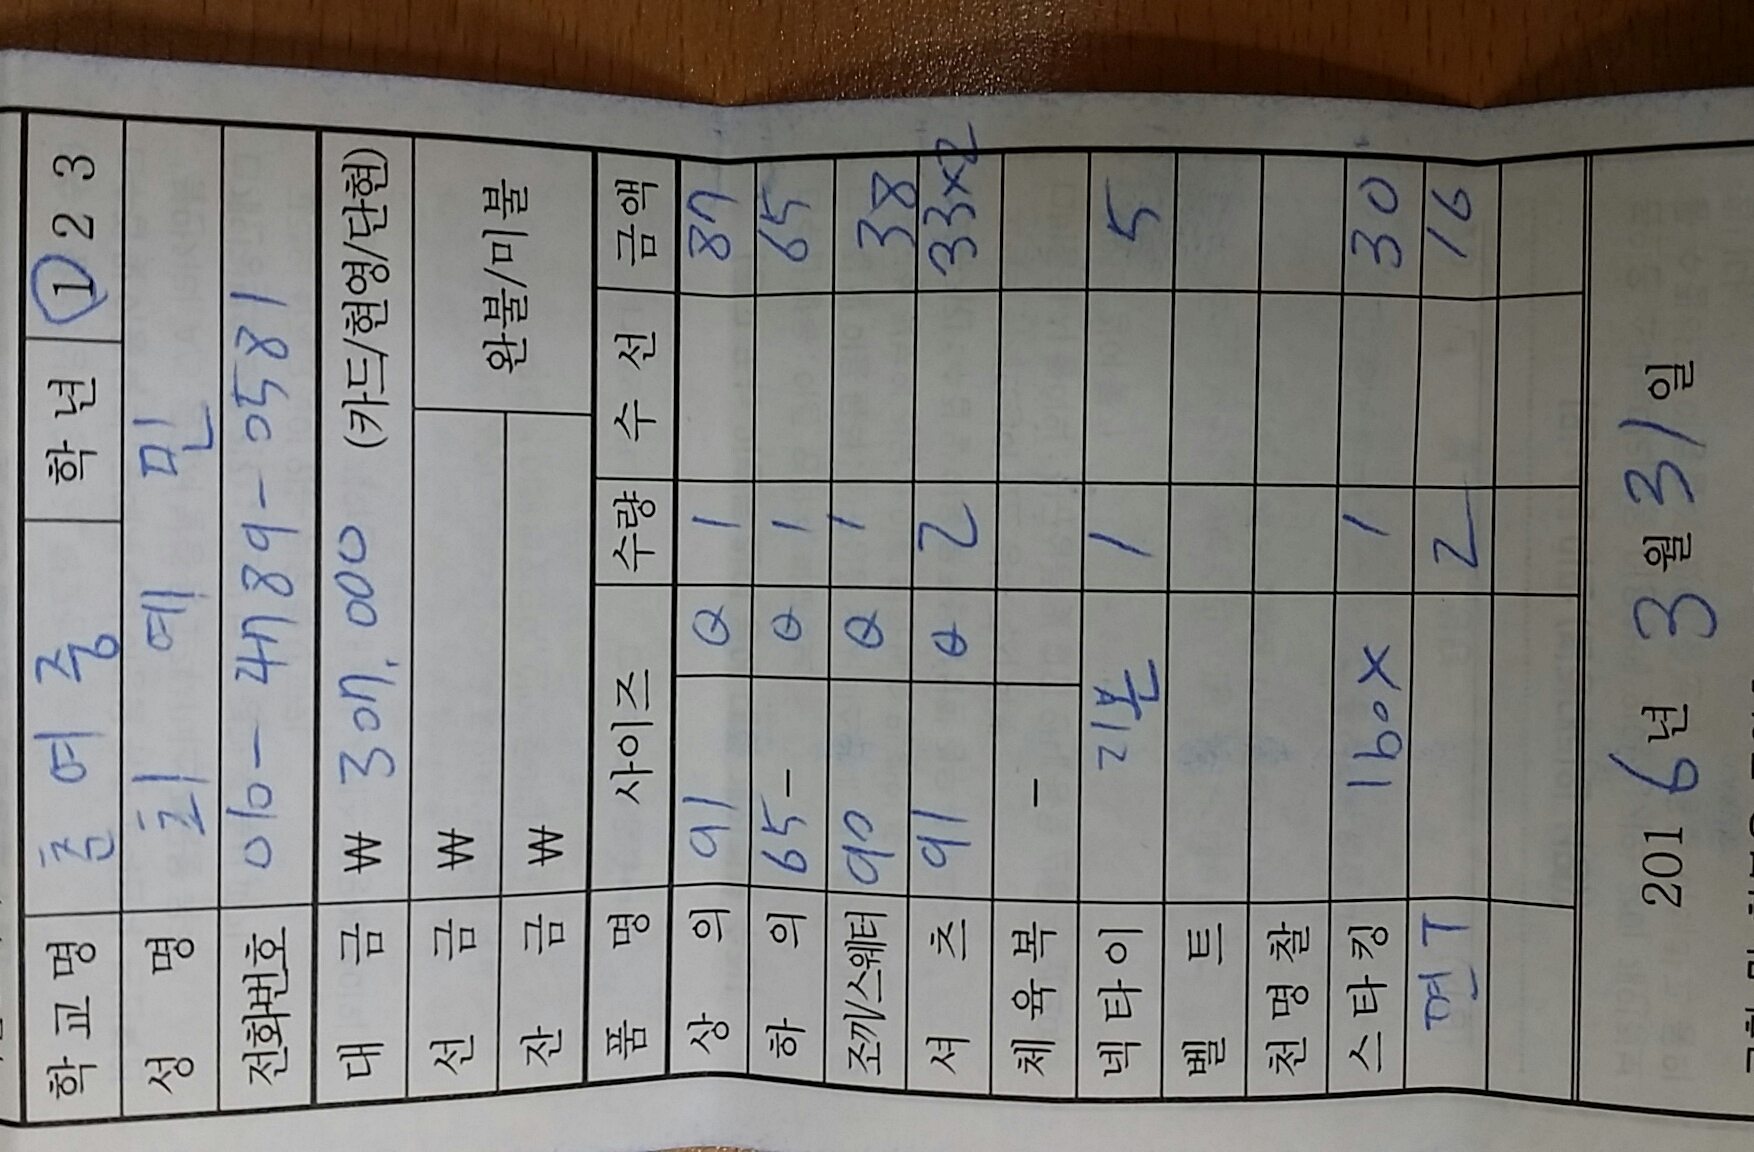 학교명 춘여중 학년 ① 2 3
성 명 최예민
전화번호 010-4789-0581
대 금 ₩ 307,000 (카드/현영/단현)
선 금 ₩ 완불/미불
잔 금 ₩
품 명 사이즈 수량 수 선 금액
상 의 91 Q 1 87
하 의 65 - Q 1 65
조끼/스웨터 90 Q 1 38
셔 츠 91 Q 2 33×2
체육복 -
넥타이 리본 1 5
벨 트
천명찰
스타킹 1box 1 30
면T 2 16
2016년 3월 31일